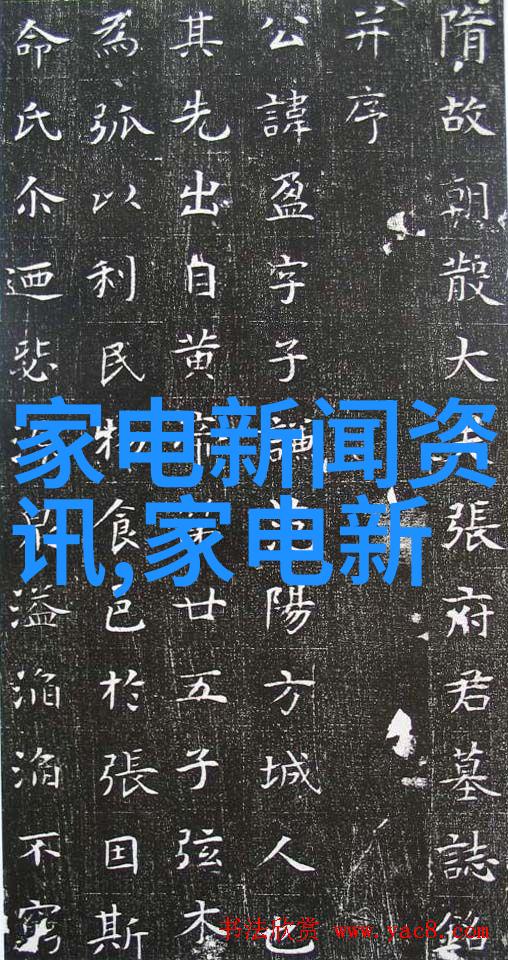 隋故朝散大夫張府君墓誌銘
并序
公諱盈字子謙范陽方城人也
其先出自黃帝第廿五子弦木
為弧以利民物食邑於張因斯
命氏尒迺溢滔滔不窮
家电新闻资
讯,家电新
书法欣赏 www.yac8.com